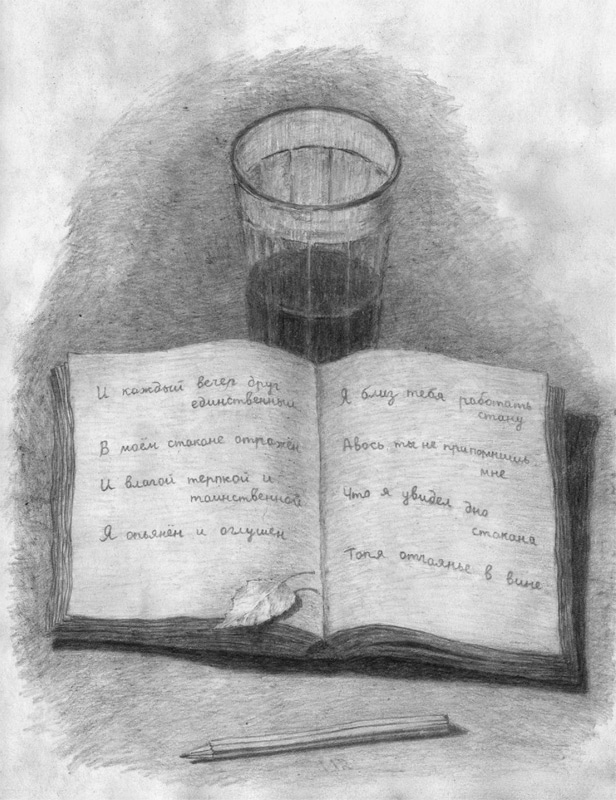 И каждый вечер друг
единственный
В моём стакане отражён
И влагой терпкой и
таинственной
Я опьянён и оглушен
Я близ тебя работать
стану
Авось ты не припомнишь
мне
Что я увидел дно
стакана
Топя отчаянье в вине